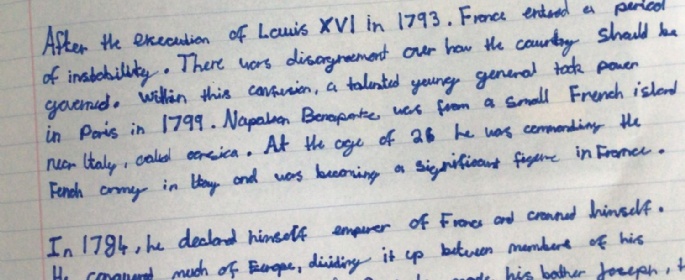 After the execution of Louis XVI in 1793. France entered a period
of instability. There was disagreement over how the country should be
governed. Within this confusion, a talented young general took power
in Paris in 1799. Napoleon Bonaparte was from a small French island
near Italy, called corsica. At the age of 26 he was commanding the
Fench army in Itay and was becoming a significant figure in France.
In 1794, he declard himself emperor of France and crowned himself.
He conquered much of Europe, dividing it up between members of his
his bother Joseph,